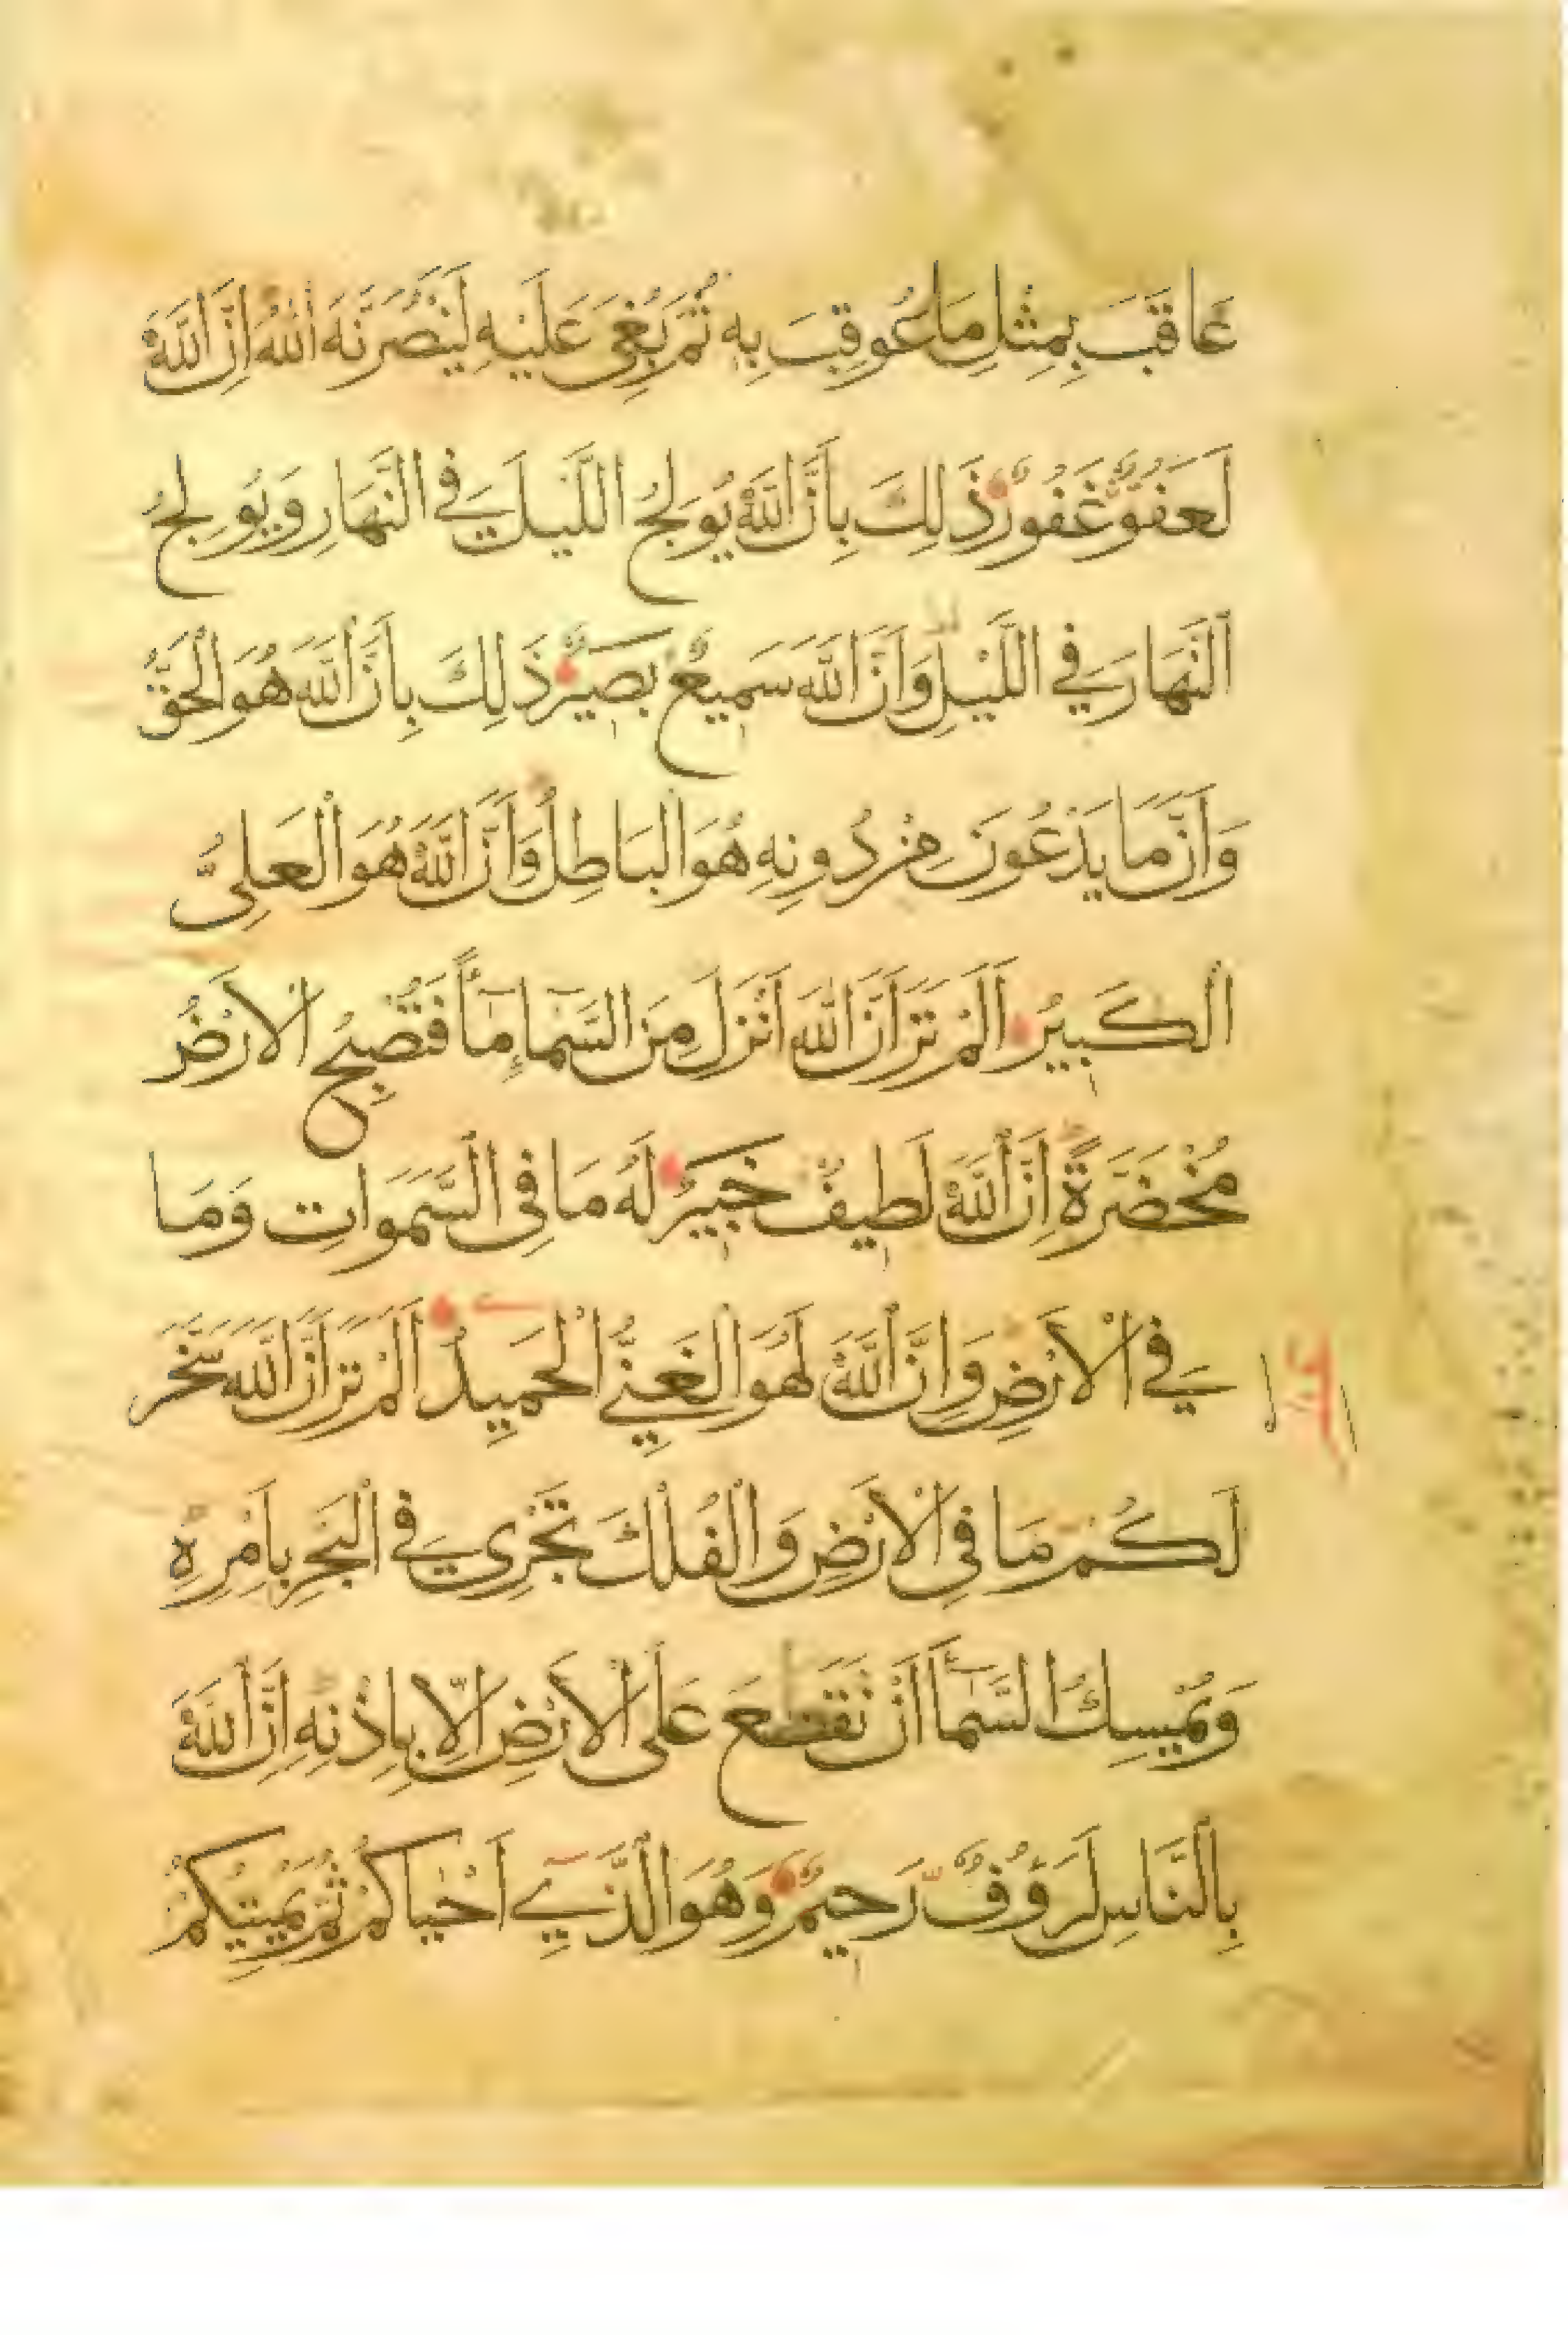 عَاقَبَ بِمِثْلِ مَا عُوقِبَ بِهِ ثُمَّ بُغِيَ عَلَيْهِ لَيَنْصُرَنَّهُ اللَّهُ إِنَّ اللَّهَ
لَعَفُوٌّ غَفُورٌ ذَلِكَ بِأَنَّ اللَّهَ يُولِجُ اللَّيْلَ فِي النَّهَارِ وَيُولِجُ
النَّهَارَ فِي اللَّيْلِ وَأَنَّ اللَّهَ سَمِيعٌ بَصِيرٌ ذَلِكَ بِأَنَّ اللَّهَ هُوَ الْحَقُّ
وَأَنَّ مَا يَدْعُونَ مِنْ دُونِهِ هُوَ الْبَاطِلُ وَأَنَّ اللَّهَ هُوَ الْعَلِيُّ
الْكَبِيرُ أَلَمْ تَرَ أَنَّ اللَّهَ أَنْزَلَ مِنَ السَّمَاءِ مَاءً فَتُصْبِحُ الْأَرْضُ
مُخْضَرَّةً إِنَّ اللَّهَ لَطِيفٌ خَبِيرٌ لَهُ مَا فِي السَّمَوَاتِ وَمَا
فِي الْأَرْضِ وَإِنَّ اللَّهَ لَهُوَ الْغَنِيُّ الْحَمِيدُ أَلَمْ تَرَ أَنَّ اللَّهَ سَخَّرَ
لَكُمْ مَا فِي الْأَرْضِ وَالْفُلْكَ تَجْرِي فِي الْبَحْرِ بِأَمْرِهِ
وَيُمْسِكُ السَّمَاءَ أَنْ تَقَعَ عَلَى الْأَرْضِ إِلَّا بِإِذْنِهِ إِنَّ اللَّهَ
بِالنَّاسِ لَرَؤُفٌ رَحِيمٌ وَهُوَ الَّذِي أَحْيَاكُمْ ثُمَّ يُمِيتُكُمْ